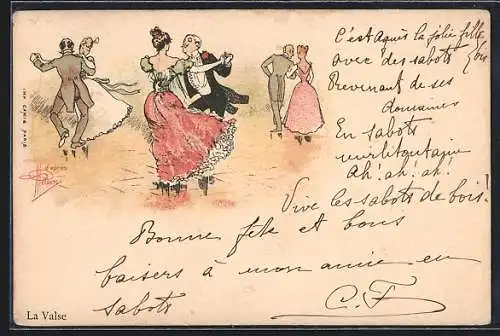 C'est aquis la jolie fille
avec des sabots (bis
Revenant de ses
domaines
En sabots
mirlitontaine
Ah! ah! ah!
Vive les sabots de bois!
Bonne fête et bons
baisers à mon amie en
sabots
C. F
d'après
La Valse